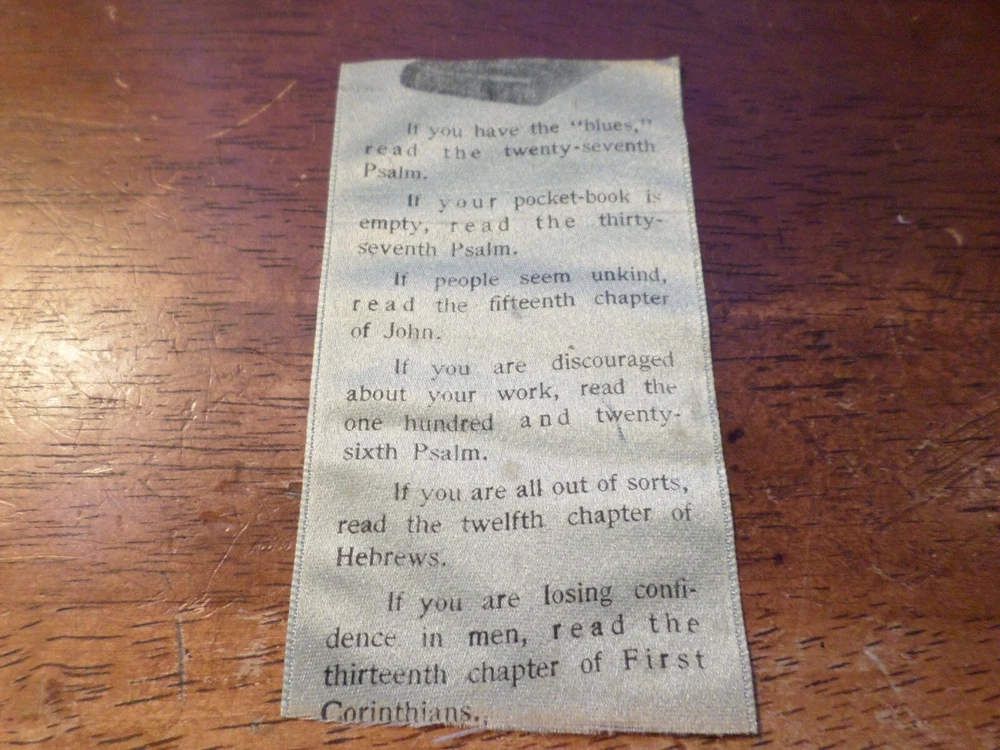 If you have the "blues,"
read the twenty-seventh
Psalm.
If your pocket-book is
empty, read the thirty-
seventh Psalm.
If people seem unkind,
read the fifteenth chapter
of John.
If you are discouraged
about your work, read the
one hundred and twenty-
sixth Psalm.
If you are all out of sorts,
read the twelfth chapter of
Hebrews.
If you are losing confi-
dence in men, read the
thirteenth chapter of First
Corinthians.